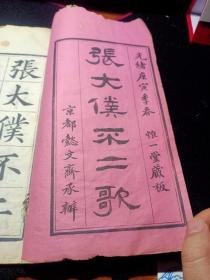 光緒庚寅季春 惟一堂藏板
張大僕不二歌
京都懿文齋承辦
張太僕不二